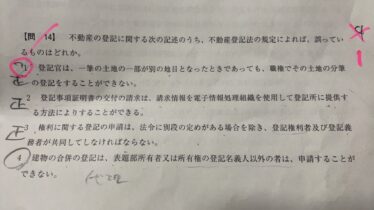 【問 14】 不動産の登記に関する次の記述のうち、不動産登記法の規定によれば、誤って
いるものはどれか。
1 登記官は、一筆の土地の一部が別の地目となったときであっても、職権でその土地の分筆
の登記をすることができない。
2 登記事項証明書の交付の請求は、請求情報を電子情報処理組織を使用して登記所に提供す
る方法によりすることができる。
正
3 権利に関する登記の申請は、法令に別段の定めがある場合を除き、登記権利者及び登記義
務者が共同してしなければならない。
正
4 建物の合併の登記は、表題部所有者又は所有権の登記名義人以外の者は、申請することが
できない。